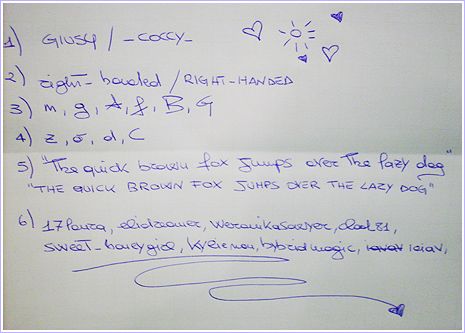 1) GIUSY / -COCCY-
2) right-handed / RIGHT-HANDED
3) m, g, A, f, B, G
4) z, o, d, C
5) "The quick brown fox jumps over the lazy dog"
"THE QUICK BROWN FOX JUMPS OVER THE LAZY DOG"
6) 17laura, weronikasawyer,
sweet_honeygirl, hybridmagic,